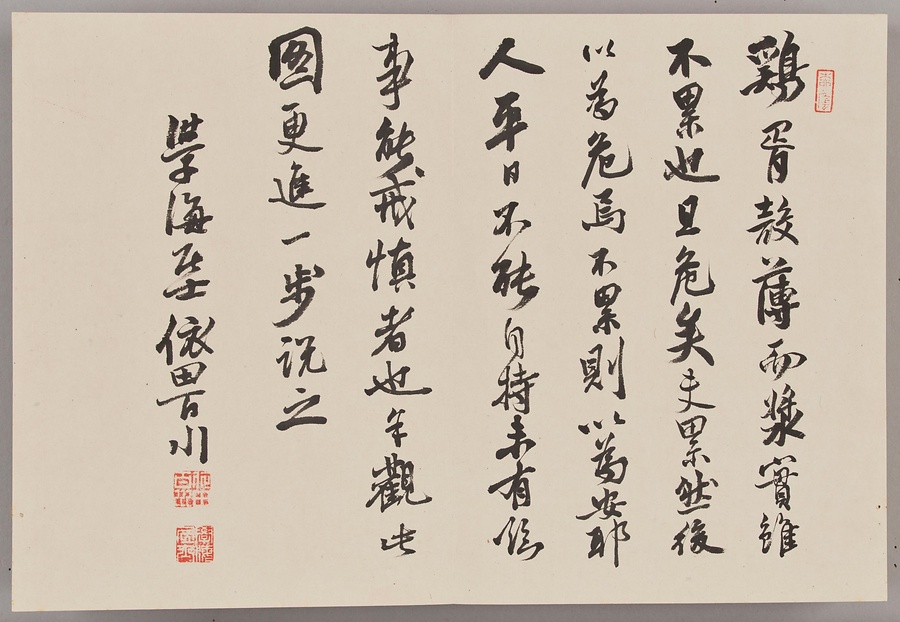 鶏胥殻薄而漿實雖
不累也且危矣夫累然後
以為危焉不累則以為安耶
人平日不能自持未有臨
事能戒慎者也余觀此
圖更進一步説之
學海居士依田百川